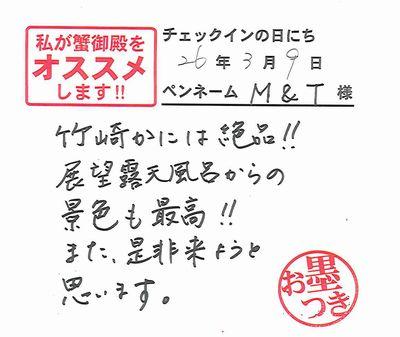 私が蟹御殿を
オススメ
します!!
チェックインの日にち
26年3月9日
ペンネーム M&T 様
竹崎かには絶品!!
展望露天風呂からの
景色も最高!!
また、是非来ようと
思います。
お墨つき